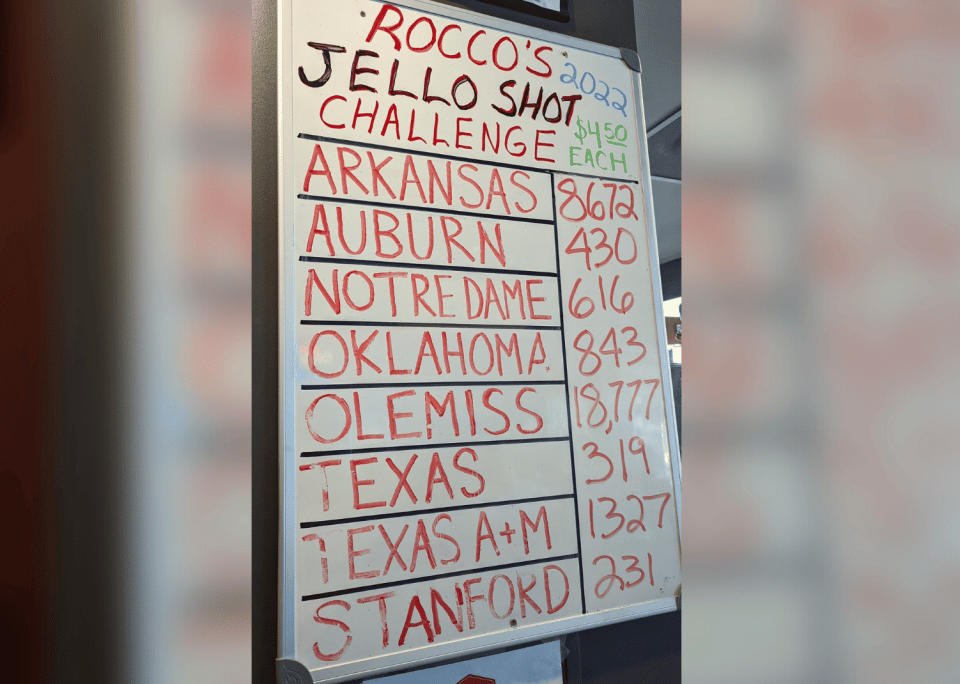 ROCCO'S
2022
JELLO SHOT
CHALLENGE
$4.50
EACH
ARKANSAS 8672
AUBURN 430
NOTRE DAME 616
OKLAHOMA 843
OLE MISS 18,777
TEXAS 319
TEXAS A+M 1327
STANFORD 231